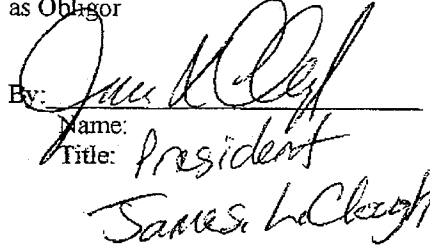 as Obligor
By:
Name:
Title: President
James L. Clough